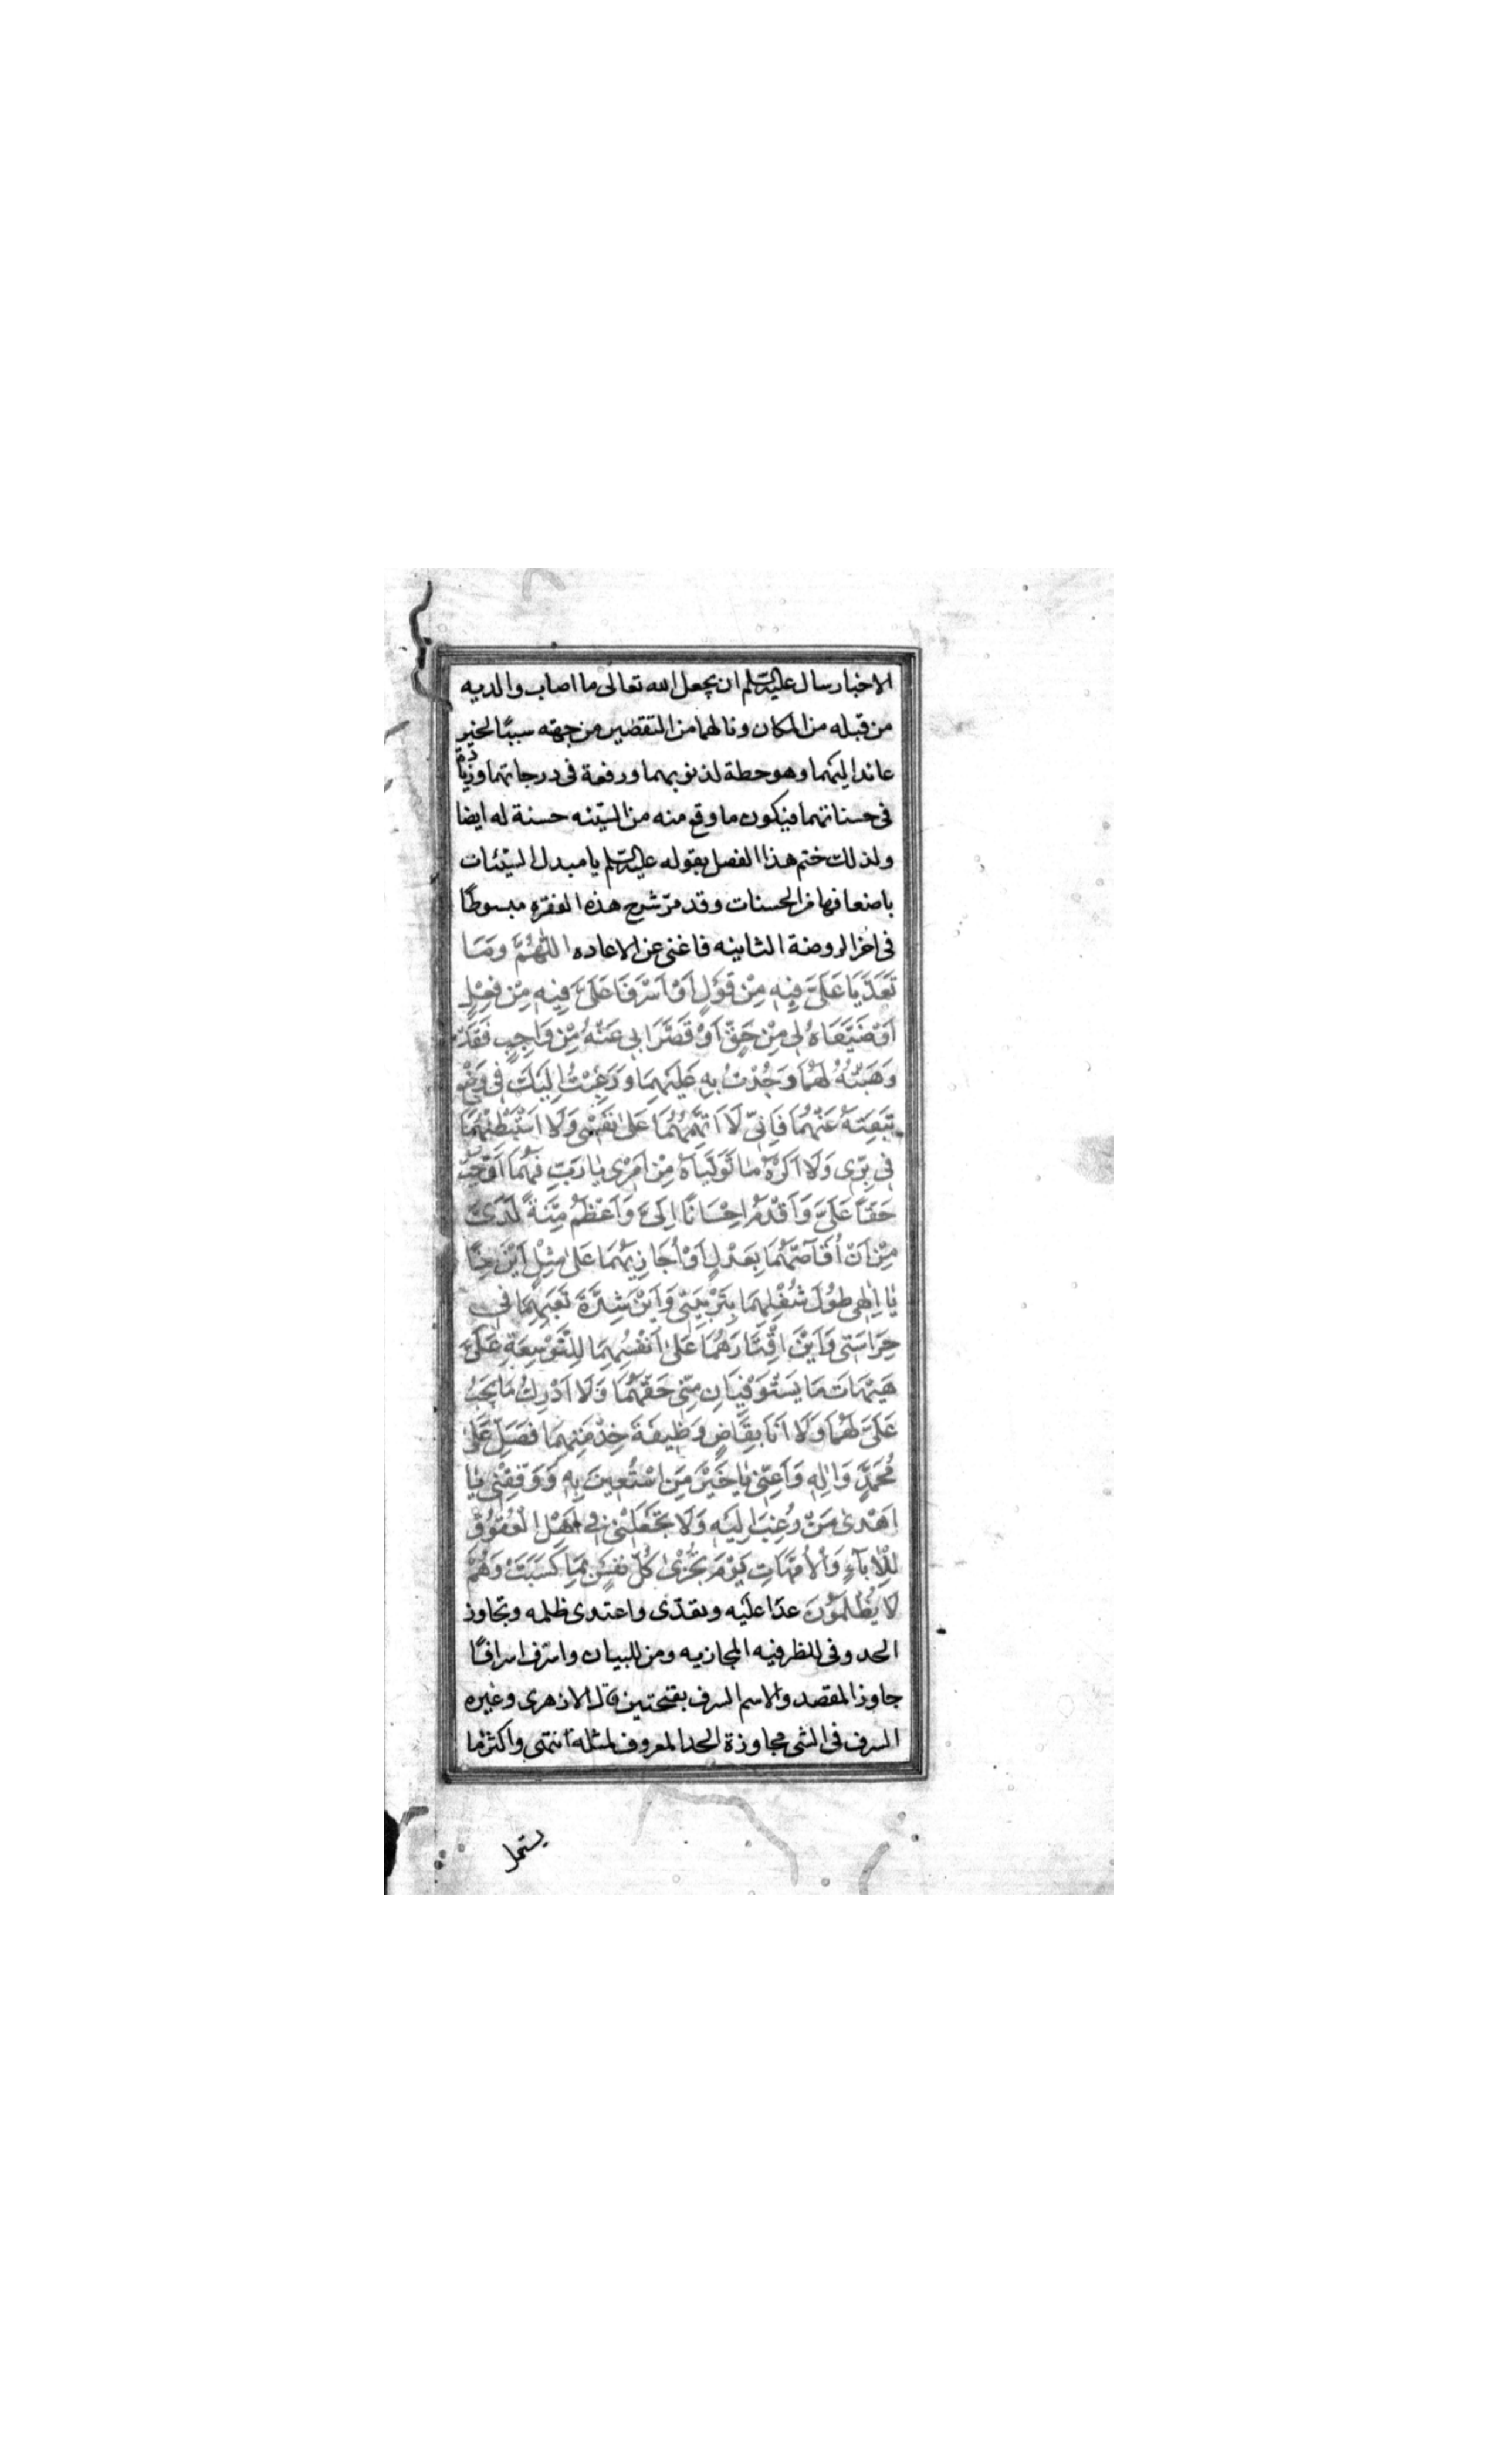 الاخبار سال عليه السلم ان يجعل الله تعالى ما اصاب والديه
من قبله من المكان ونالهما من التقصير من جهته سببًا لخير
عائد اليهما وهو حطة لذنوبهما ورفعة فى درجاتهما وزيادة
فى حسناتهما فيكون ما وقع منه من السيّئه حسنة له ايضا
ولذلك ختم هذا الفصل بقوله عليه السلم يا مبدل السيّئات
باضعافها من الحسنات وقد مرّ شرح هذه الفقره مبسوطًا
فى اخر الروضة الثانيه فاغنى عن الاعاده اللّٰهُمَّ وَمَا
تَعَدَّيَا عَلَىَّ فِيهِ مِنْ قَوْلٍ اَوْ اَسْرَفَا عَلَىَّ فِيهِ مِنْ فِعْلٍ
اَوْ ضَيَّعَاهُ لِى مِنْ حَقٍّ اَوْ قَصَّرَا بِى عَنْهُ مِنْ وَاجِبٍ فَقَدْ
وَهَبْتُهُ لَهُمَا وَجُدْتُ بِهِ عَلَيْهِمَا وَرَغِبْتُ اِلَيْكَ فِى وَضْعِ
تَبِعَتِهِ عَنْهُمَا فَاِنِّى لَا اَتَّهِمُهُمَا عَلىٰ نَفْسِى وَلَا اَسْتَبْطِئُهُمَا
فِى بِرِّى وَلَا اَكْرَهُ مَا تَوَلَّيَاهُ مِنْ اَمْرِى يَا رَبِّ فَهُمَا اَوْجَبُ
حَقًّا عَلَىَّ وَاَقْدَمُ اِحْسَانًا اِلَىَّ وَاَعْظَمُ مِنَّةً لَدَىَّ
مِنْ اَنْ اُقَاصَّهُمَا بِعَدْلٍ اَوْ اُجَازِيَهُمَا عَلىٰ مِثْلٍ اَيْنَ اِذًا
يَا اِلٰهِى طُولُ شُغْلِهِمَا بِتَرْبِيَتِى وَاَيْنَ شِدَّةُ تَعَبِهِمَا فِى
حِرَاسَتِى وَاَيْنَ اِقْتَارُهُمَا عَلىٰ اَنْفُسِهِمَا لِلتَّوْسِعَةِ عَلَىَّ
هَيْهَاتَ مَا يَسْتَوْفِيَانِ مِنِّى حَقَّهُمَا وَلَا اُدْرِكُ مَا يَجِبُ
عَلَىَّ لَهُمَا وَلَا اَنَا بِقَاضٍ وَظِيفَةَ خِدْمَتِهِمَا فَصَلِّ عَلىٰ
مُحَمَّدٍ وَاٰلِهِ وَاَعِنِّى يَا خَيْرَ مَنِ اسْتُعِينَ بِهِ وَوَفِّقْنِى يَا
اَهْدىٰ مَنْ رُغِبَ اِلَيْهِ وَلَا تَجْعَلْنِى فِى اَهْلِ الْعُقُوقِ
لِلْاٰبَاءِ وَالْاُمَّهَاتِ يَوْمَ تُجْزىٰ كُلُّ نَفْسٍ بِمَا كَسَبَتْ وَهُمْ
لَا يُظْلَمُونَ عدا عليه وتعدّى واعتدى ظلمه وتجاوز
الحد وفى للظرفيه المجازيه ومن للبيان واسرف اسرافًا
جاوز المقصد والاسم السرف بفتحتين قال الازهرى وغيره
السرف فى الشى مجاوزة الحد المعروف لمثله انتهى واكثر ما
يستعمل